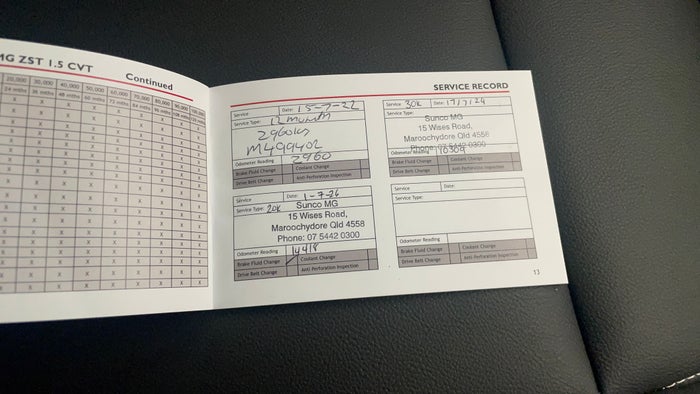 MG ZST 1.5 CVT
Continued
20,000 30,000 40,000 50,000 60,000 70,000 80,000 90,000
24 mths 36 mths 48 mths 60 mths 72 mths 84 mths 96 mths 108 mths
SERVICE RECORD
Service Date: 15-7-22
Service Type: 12 month
2960km
M499402
Odometer Reading 2960
Brake Fluid Change Coolant Change
Drive Belt Change Anti Perforation Inspection
Service 30K Date: 17/7/24
Service Type:
Sunco MG
15 Wises Road,
Maroochydore Qld 4558
Phone: 07 5442 0300
Odometer Reading 10309
Brake Fluid Change Coolant Change
Drive Belt Change Anti Perforation Inspection
Service Date: 1-7-26
Service Type: 20K Sunco MG
15 Wises Road,
Maroochydore Qld 4558
Phone: 07 5442 0300
Odometer Reading 14418
Brake Fluid Change Coolant Change
Drive Belt Change Anti Perforation Inspection
Service Date:
Service Type:
Odometer Reading
Brake Fluid Change Coolant Change
Drive Belt Change Anti Perforation Inspection
13